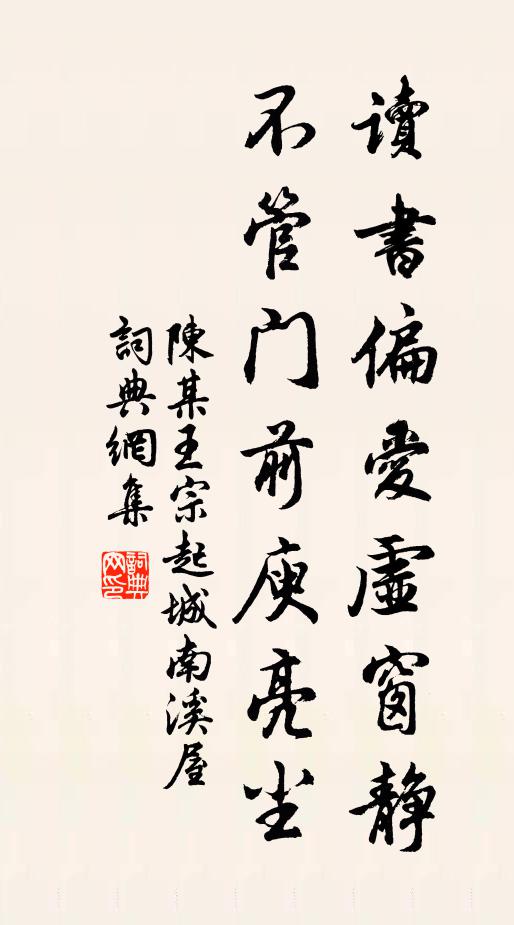 讀書偏愛虛窗靜
不管门前庾亮尘
陳某王宗起城南溪屋
詞典網集
詞典网印